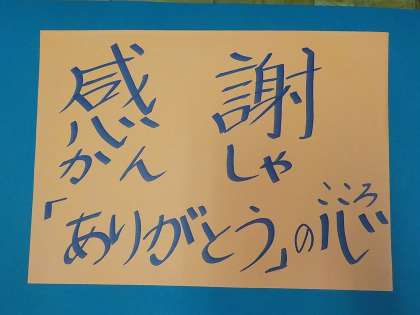 感謝
かんしゃ
こころ
「ありがとう」の心